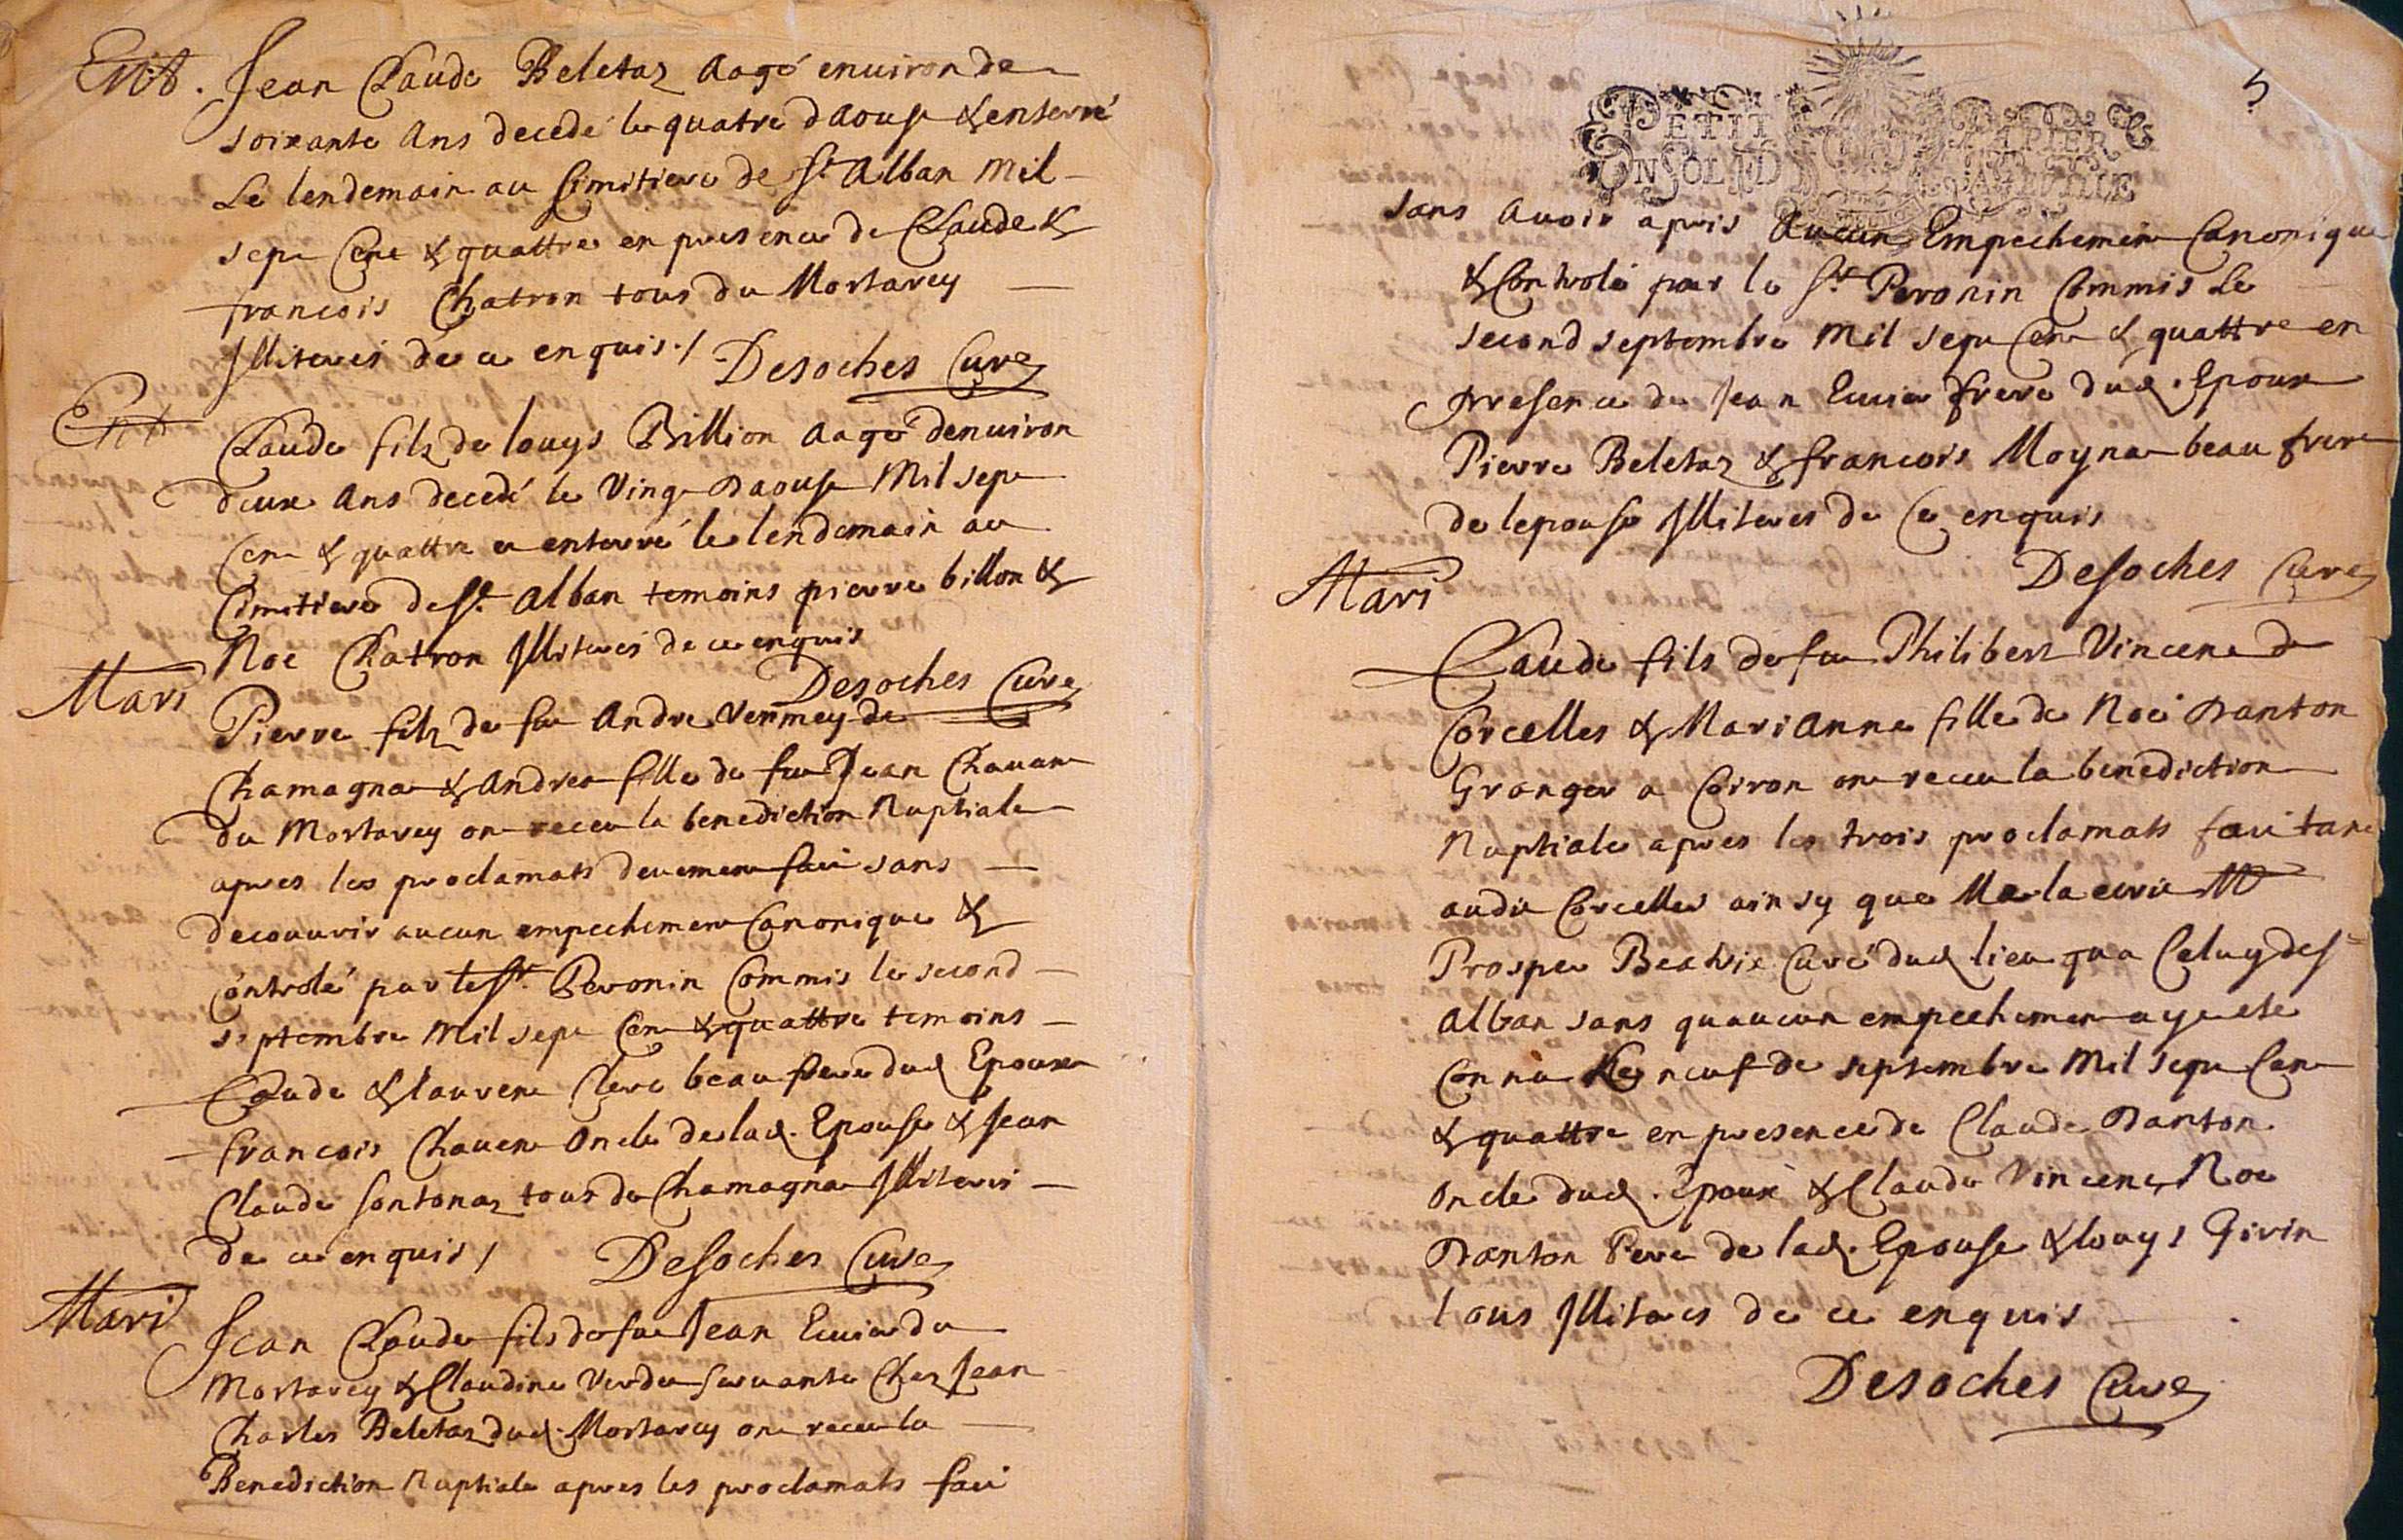 Ent. Jean Claude Beletaz aagé enuiron de
soixante ans decedé le quatre daoust & enterré
Le lendemain au Cimitiere de St Alban Mil
sept Cent & quattre en presence de Claude &
francois Chatron tous du Mortarey
Illiterés de ce enquis./ Desoches Curé
Ent Claude filz de louys Billion aagé denuiron
deux ans decedé le Vingt Daoust Mil sept
Cent & quattre et enterré le lendemain au
Cimitiere de St. Alban temoins pierre billon &
Noe Chatron Illiterés de ce enquis
Desoches Curé
Mari Pierre filz de feu Andre Vermey de
Chamagna & Andrea fille de feu Jean Chauant
du Mortarey ont receu la benediction Nuptiale
apres les proclamats deuement fait sans
decouurir aucun empechement Canonique &
Controlé par le Sr. Peronin Commis le second
septembre Mil sept Cent & quattre temoins
Claude & laurent Clerc beau frere dud Epoux
francois Chauent Oncle de lad. Epouse & Jean
Claude Sontonaz tous de Chamagna Illiterés
de ce enquis / Desoches Curé
Mari Jean Claude fils de feu Jean Euvia du
Mortarey & Claudine Verdu seruante Chez Jean
Charles Beletaz dud. Mortarey ont receu la
Benediction Nuptiale apres les proclamats fait
5
PETIT PAPIER
UN SOL LE D
sans auoir apris Aucun Empechement Canonique
& Controlé par le Sr Peronin Commis Le
second septembre Mil sept Cent & quattre en
presence de Jean Euvia frere dud. Epoux
Pierre Beletaz & francois Moyna beau frere
de lepouse Illiteres de Ce enquis
Desoches Curé
Mari
Claude fils de feu Philibert Vincent de
Corcelles & Marianne fille de Noé Danton
Granger a Coiron ont receu la benediction
Nuptiale apres les trois proclamats fait tant
audit Corcelles ainsy que Me la ecrit Mr
Prosper Beatrix Curé dud lieu qua Celuy de St
Alban sans quaucun empechement aye ete
Connu le neuf de septembre Mil sept Cent
& quattre en presence de Claude Danton
Oncle dud. Epoux & Claude Vincent, Noe
Danton Pere de lad. Epouse & louys Givin
tous Illiteres de ce enquis
Desoches Curé